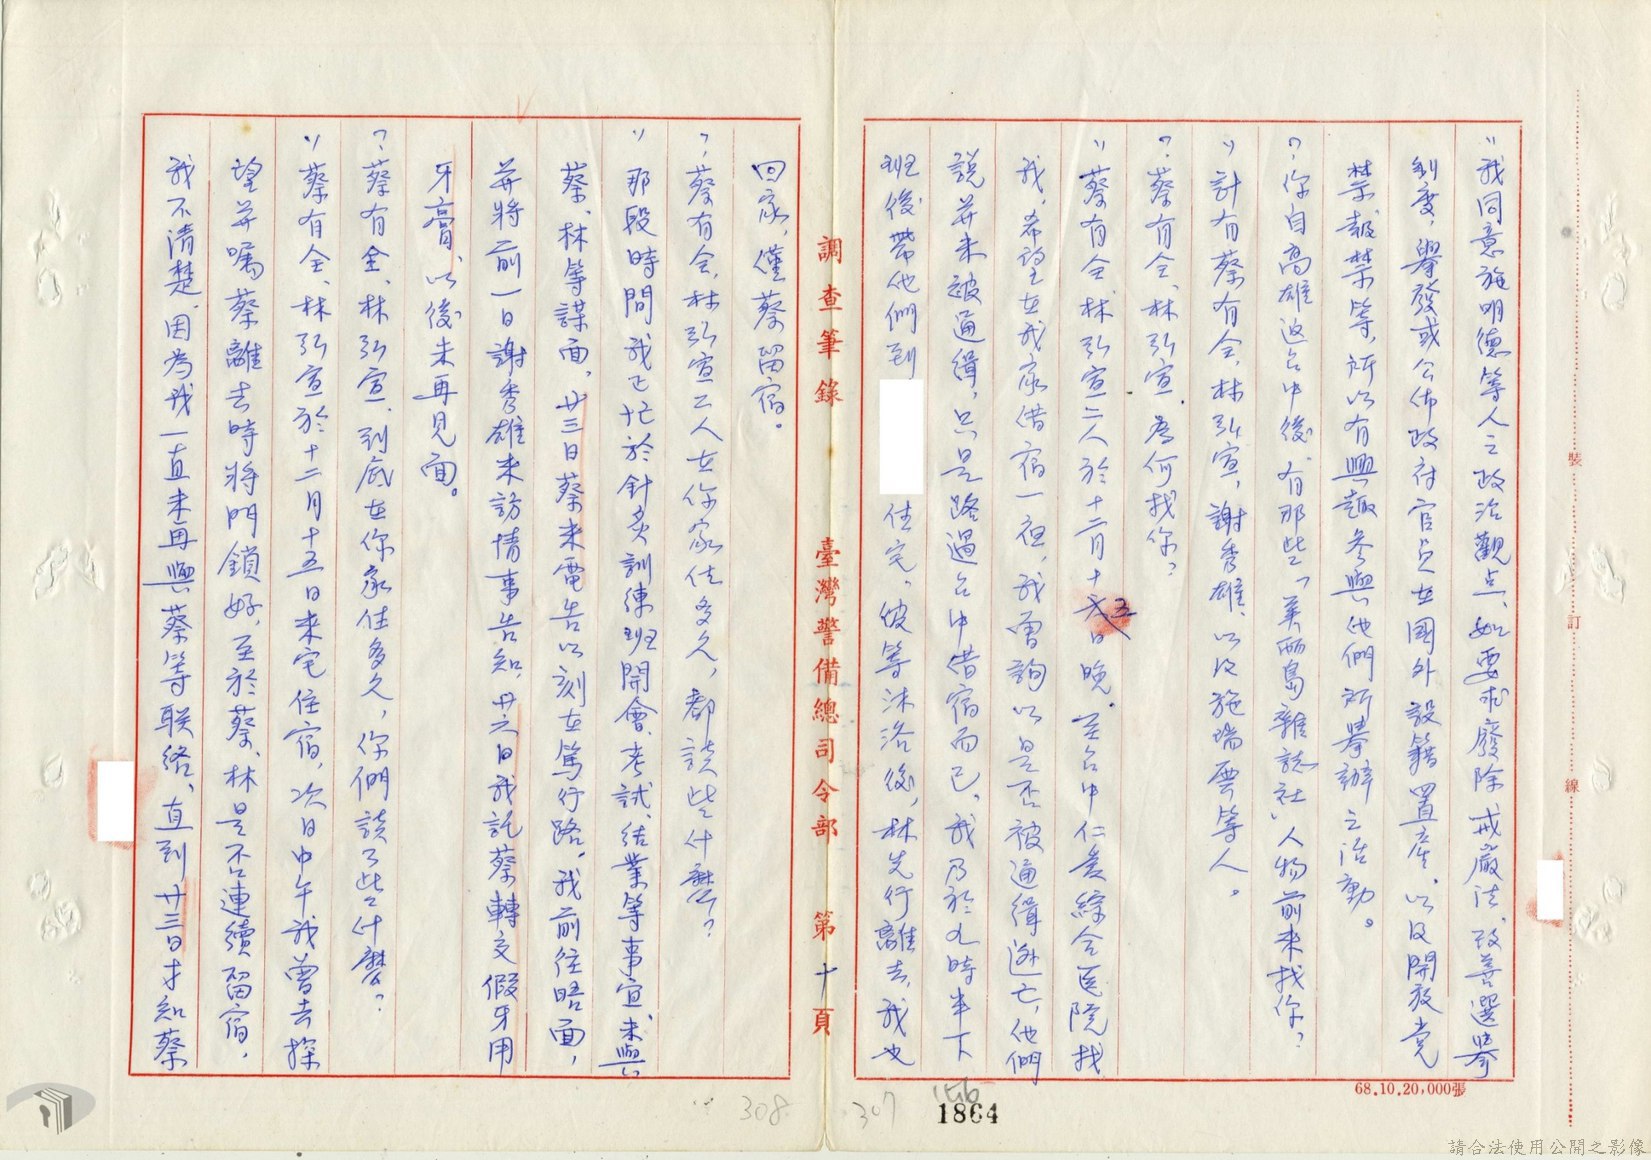 〃我同意施明德等人之政治觀点、如要求廢除戒嚴法、改善選舉
制度，舉發或公佈政府官員在國外設籍置產，以及開放党
禁報禁等，所以有興趣參與他們所舉辦之活動。
？你自高雄返台中後，有那些「美丽島雜誌社」人物前来找你？
〃計有蔡有全、林弘宣、謝秀雄、以及施瑞雲等人。
？蔡有全、林弘宣，為何找你？
〃蔡有全、林弘宣二人於十二月十五日晚，至台中仁愛綜合医院找
我，希望在我家借宿一夜，我曾詢以是否被通緝逃亡，他們
說并未被通緝，只是路過台中借宿而已，我乃於九時半下
班後帶他們到
住宅，彼等沐浴後，林先行離去，我也
調查筆錄 臺灣警備總司令部 第十頁
回家，僅蔡留宿。
？蔡有全、林弘宣二人在你家住多久，都談些什麼？
〃那段時間我已忙於針灸訓練班開會、考試、結業等事宜，未與
蔡、林等謀面，廿三日蔡来電告以刻在篤行路，我前往晤面，
并將前一日謝秀雄来訪情事告知，廿六日我託蔡轉交假牙用
牙膏，以後未再見面。
？蔡有全、林弘宣，到底在你家住多久，你們談了些什麼？
〃蔡有全、林弘宣於十二月十五日来宅住宿，次日中午我曾去探
望并囑蔡離去時將門鎖好，至於蔡、林是否連續留宿，
我不清楚，因為我一直未再與蔡等联络，直到廿三日才知蔡
裝 訂 線
68.10.20,000張
156
1864
307
308
請合法使用公開之影像